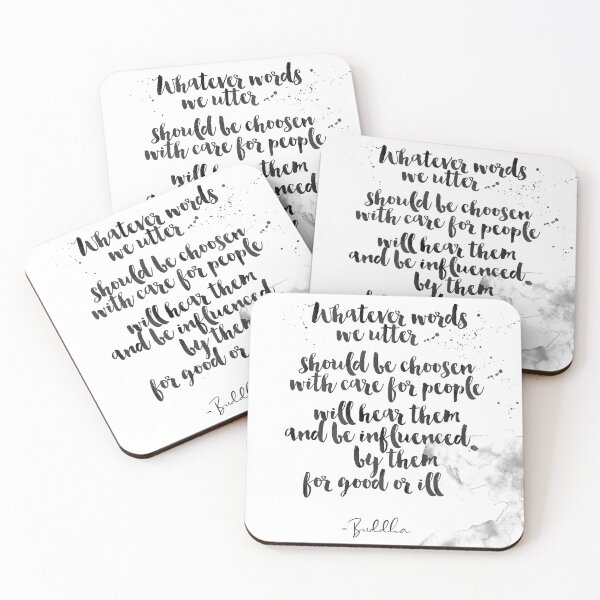 Whatever words
we utter
should be choosen
with care for people
will them
influenced
Whatever words
we utter
should be choosen
with care for people
will hear them
and be influenced
by them
Whatever words
we utter
should be choosen
with care for people
will hear them
and be influenced
by them
for good or
Whatever words
we utter
should be choosen
with care for people
will hear them
and be influenced
by them
for good or ill
-Buddha